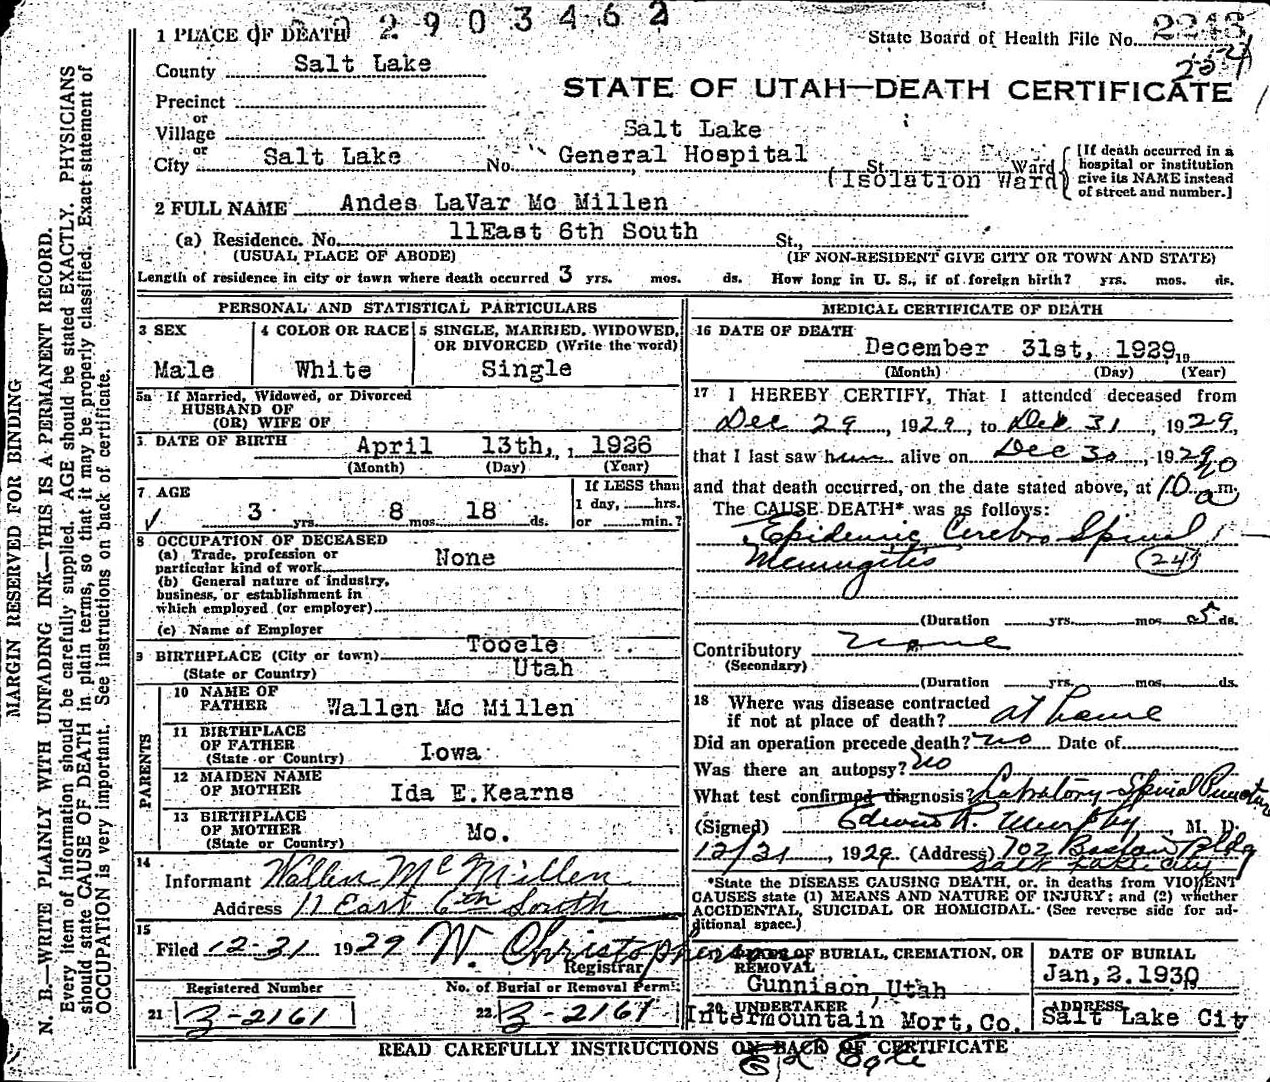 2903462
1 PLACE OF DEATH
State Board of Health File No. 2248
254
County Salt Lake
STATE OF UTAH—DEATH CERTIFICATE
Precinct
or
Village
or
City Salt Lake No. Salt Lake General Hospital St. Ward
(Isolation Ward)
[If death occurred in a hospital or institution give its NAME instead of street and number.]
2 FULL NAME Andes LaVar Mc Millen
(a) Residence. No. 11East 6th South St.,
(USUAL PLACE OF ABODE) (IF NON-RESIDENT GIVE CITY OR TOWN AND STATE)
Length of residence in city or town where death occurred 3 yrs. mos. ds. How long in U. S., if of foreign birth? yrs. mos. ds.
PERSONAL AND STATISTICAL PARTICULARS
3 SEX
Male
4 COLOR OR RACE
White
5 SINGLE, MARRIED, WIDOWED, OR DIVORCED (Write the word)
Single
5a If Married, Widowed, or Divorced
HUSBAND OF
(OR) WIFE OF
DATE OF BIRTH April 13th, , 1926
(Month) (Day) (Year)
7 AGE
3 yrs. 8 mos. 18 ds.
If LESS than
1 day, hrs.
or min.?
8 OCCUPATION OF DECEASED
(a) Trade, profession or
particular kind of work None
(b) General nature of industry,
business, or establishment in
which employed (or employer)
(c) Name of Employer
9 BIRTHPLACE (City or town) Tooele
(State or Country) Utah
PARENTS
10 NAME OF
FATHER Wallen Mc Millen
11 BIRTHPLACE
OF FATHER
(State or Country) Iowa
12 MAIDEN NAME
OF MOTHER Ida E.Kearns
13 BIRTHPLACE
OF MOTHER
(State or Country) Mo.
14
Informant Wallen McMillen
Address 11 East 6th South
15
Filed 12-31 1929 W. Christopherson
Registrar
Registered Number
21 3-2161
No. of Burial or Removal Permit
22 3-2161
MEDICAL CERTIFICATE OF DEATH
16 DATE OF DEATH
December 31st, 1929 19
(Month) (Day) (Year)
17 I HEREBY CERTIFY, That I attended deceased from
Dec 29, 1929, to Dec 31, 1929,
that I last saw him alive on Dec 30, 1929
and that death occurred, on the date stated above, at 10 a m.
The CAUSE DEATH* was as follows:
Epidemic Cerebro Spinal
Meningitis (24)
(Duration yrs. mos. 5 ds.
Contributory none
(Secondary)
(Duration yrs. mos. ds.
18 Where was disease contracted
if not at place of death? at home
Did an operation precede death? no Date of
Was there an autopsy? no
What test confirmed diagnosis? Labratory Spinal Puncture
(Signed) Edwin R. Murphy, M. D.
12/31, 1929 (Address) 702 Boston Bldg
Salt Lake City
*State the DISEASE CAUSING DEATH, or, in deaths from VIOLENT
CAUSES state (1) MEANS AND NATURE OF INJURY; and (2) whether
ACCIDENTAL, SUICIDAL OR HOMICIDAL. (See reverse side for ad-
ditional space.)
OF BURIAL, CREMATION, OR
REMOVAL
Gunnison, Utah
DATE OF BURIAL
Jan, 2. 1930
20 UNDERTAKER
Intermountain Mort, Co.
ADDRESS
Salt Lake Cit
READ CAREFULLY INSTRUCTIONS ON BACK OF CERTIFICATE
MARGIN RESERVED FOR BINDING
N. B.—WRITE PLAINLY WITH UNFADING INK—THIS IS A PERMANENT RECORD.
Every item of information should be carefully supplied. AGE should be stated EXACTLY. PHYSICIANS
should state CAUSE OF DEATH in plain terms, so that it may be properly classified. Exact statement of
OCCUPATION is very important. See instructions on back of certificate.